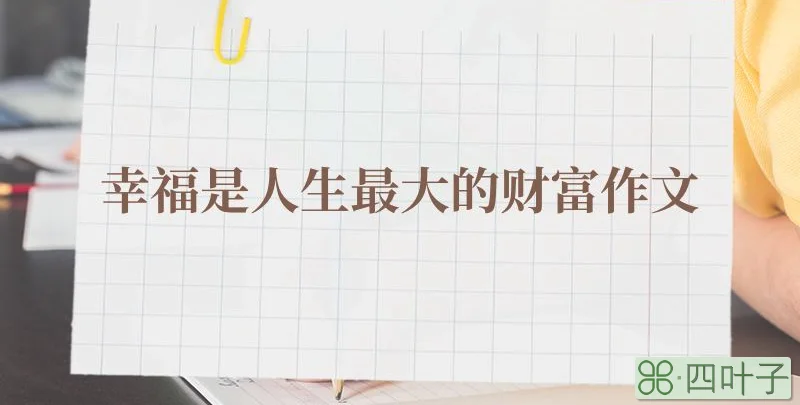 幸福是人生最大的财富作文
四叶子